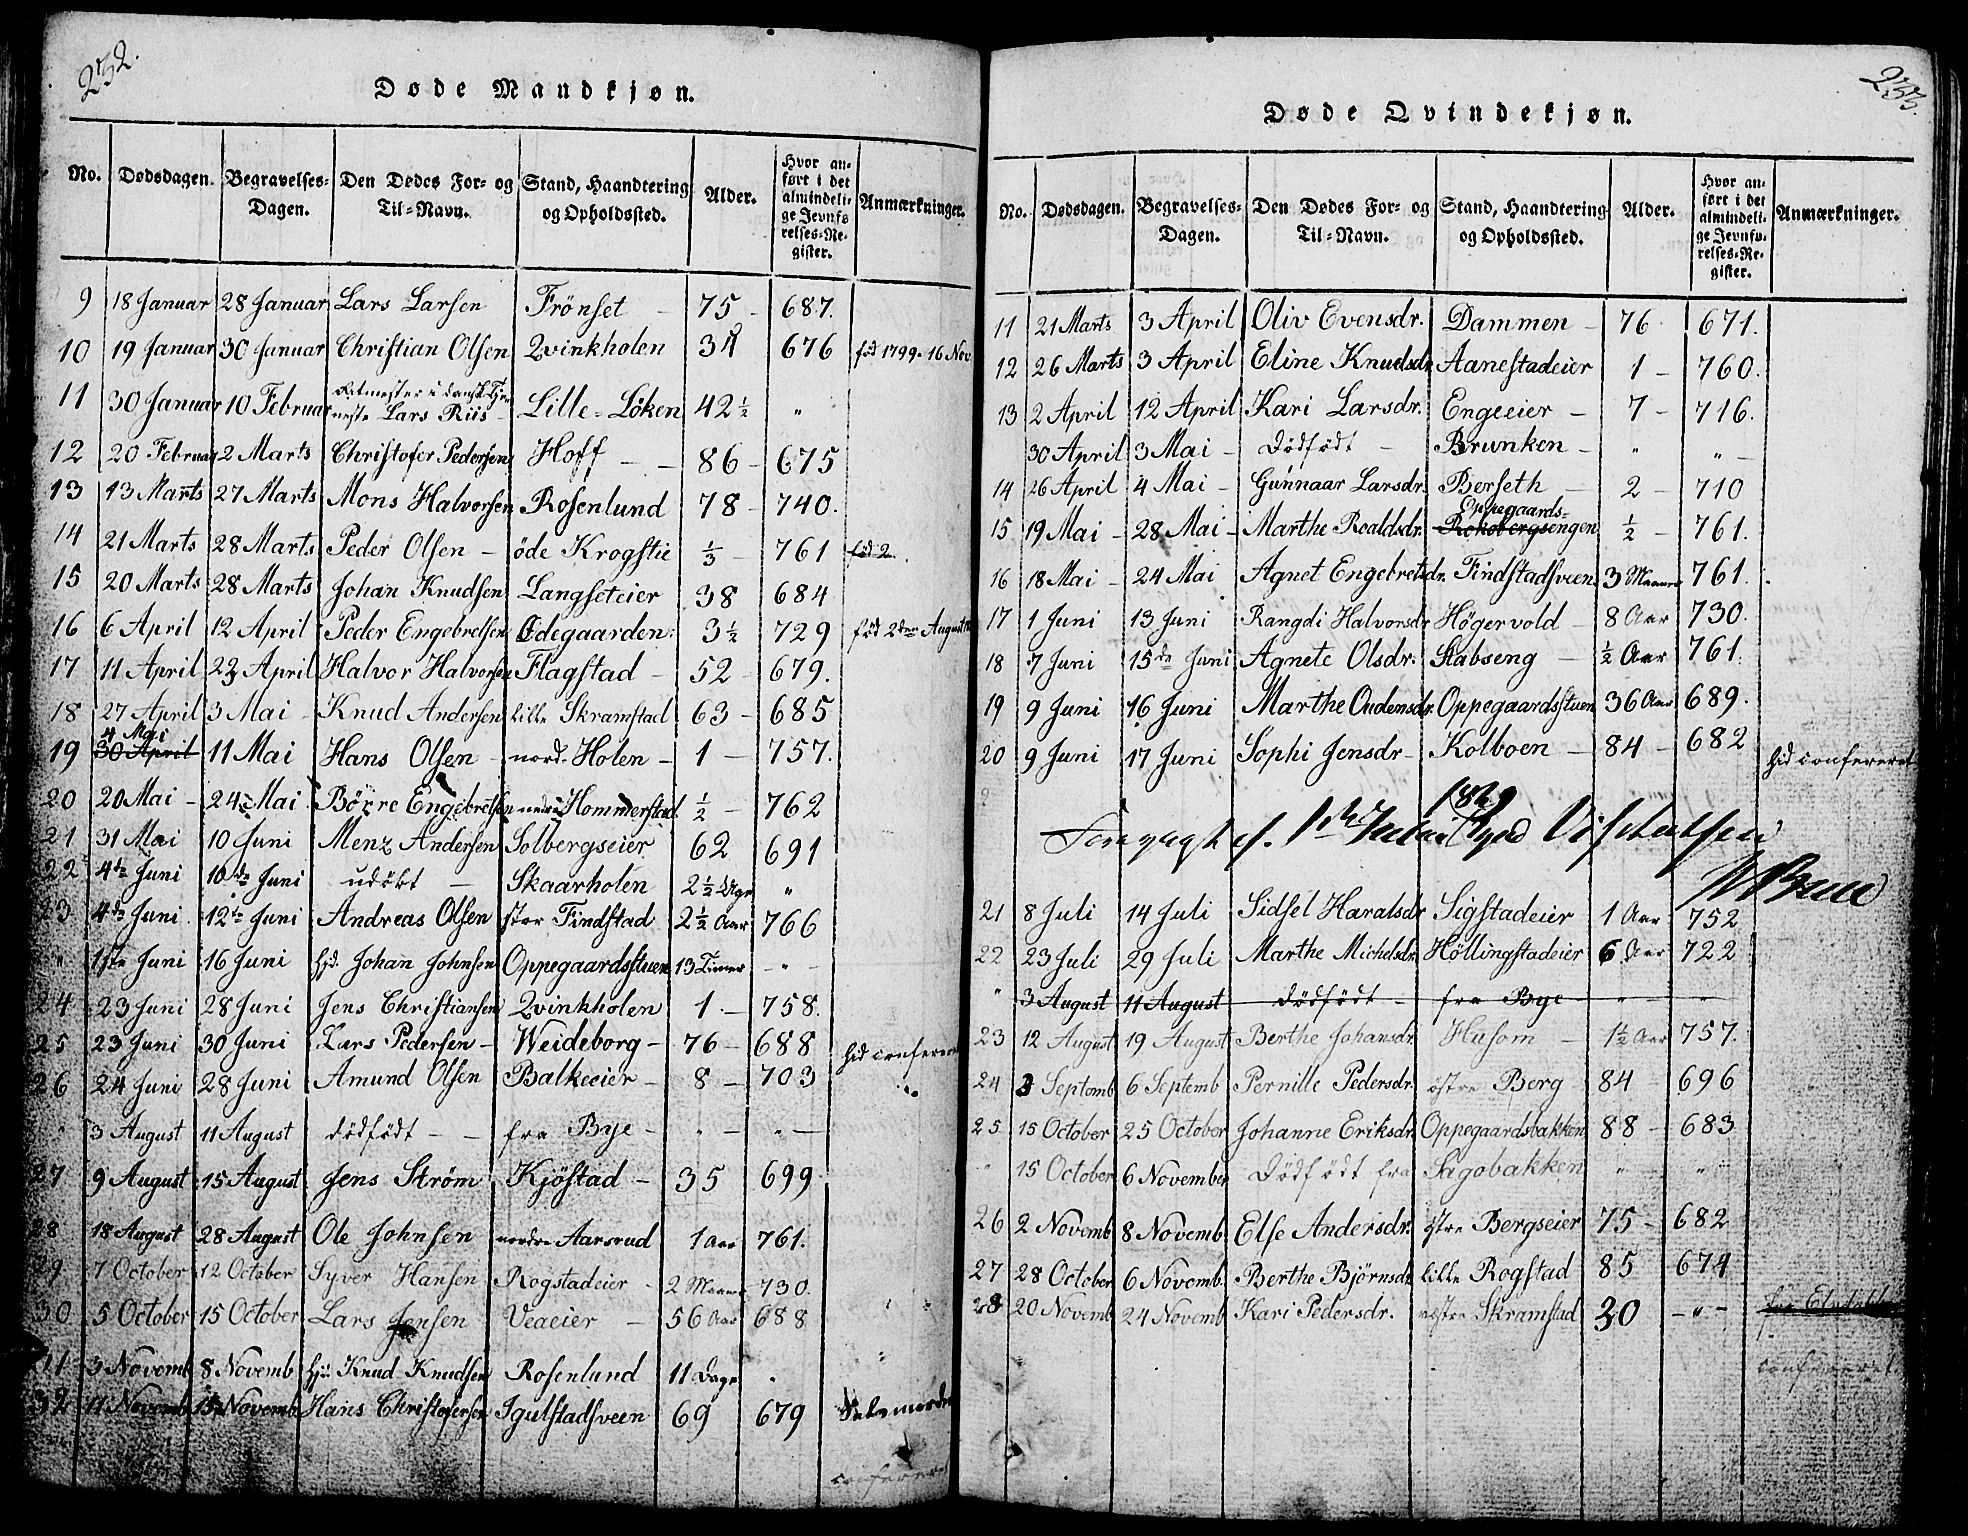 252.
Døde Mandkjøn.
No. Dødsdagen. Begravelses-Dagen. Den Dødes For- og Til-Navn. Stand, Haandtering og Opholdssted. Alder. Hvor anført i det almindelige Jevnførelses-Register. Anmærkninger.
9 18 Januar 28 Januar Lars Larsen Frönset 75 - 687.
10 19 Januar 30 Januar Christian Olsen Qvinkholen 34 676 fød 1799-16 Nov.
11 30 Januar 10 Februar Ritmester i dansk Tjeneste Lars Riis Lille-Löken 42 ½ "
12 20 Februar 2 Marts Christofer Pedersen Hoff - 86 - 675
13 13 Marts 27 Marts Mons Halvorsen Rosenlund 78 - 740.
14 21 Marts 28 Marts Peder Olsen - öde Krogstie ⅓ - 761 fød 2
15 20 Marts 28 Marts Johan Knudsen Langseteier 38 684
16 6 April 12 April Peder Engebretsen Ödegaarden 3½ - 729 fød 2den August
17 11 April 23 April Halvor Halvorsen Flagstad - 52 - 679.
18 27 April 3 Mai Knud Andersen lille Skramstad 63 - 685
4 Mai
19 30 April 11 Mai Hans Olsen - nord-Holen - 1 - 757.
20 20 Mai - 24 Mai Börre Engebretsen nedre Hommerstad ½ - 762
21 31 Mai 10 Juni Menz Andersen Solbergseier 62 691
22 4de Juni 10de Juni udöbt - Skaarholen 2½ Uge "
23 4de Juni 12te Juni Andreas Olsen stor Findstad 2½ Aar 766
" 1ste Juni 16 Juni hjd. Johan Johnsen Oppegaardsstuen 13 Timer - " -
24 23 Juni 28 Juni Jens Christiansen Qvinkholen 1 - 758.
25 23 Juni 30 Juni Lars Pedersen - Weideborg - 76 - 688 hid confereret
26 24 Juni 28 Juni Amund Olsen Balkeeier - 8 - 703
" 3 August 11 August dödfödt - - fra Bye - " - " -
27 9 August 15 August Jens Strøm Kjöstad - 35 699
28 18 August 28 August Ole Johnsen nordre Aarsrud 1 Aar 761.
29 7 October 12 October Syver Hansen Rogstadeier - 2 Maan 730.
30 5 October 15 October Lars Jensen Veaeier - 56 Aar 688
11 3 Novemb 8 Novemb hjd. Knud Knudsen Rosenlund 11 Dage "
32 11 Novemb 15 Novemb Hans Christofersen Igulstadsveen 69 679 Selvmorder
confereret
233.
Døde Qvindekjøn.
No. Dødsdagen. Begravelses-Dagen. Den Dødes For- og Til-Navn. Stand, Haandtering og Opholdssted. Alder. Hvor anført i det almindelige Jevnførelses-Register. Anmærkninger.
11 21 Marts 3 April Oliv Evensdr. Dammen - 76 671.
12 26 Marts 3 April Eline Knudsdr Aanestadeier 1 - 760.
13 2 April 12 April Kari Larsdr. Engeeier - 7 - 716.
30 April 3 Mai - Dödfödt - Brunken - " " -
14 26 April 4 Mai - Gunnaar Larsdr. Berseth - 2 - 710
Oppegaards-
15 19 Mai - 28 Mai - Marthe Roaldsdr. Rokobergsengen ½ - 761.
16 18 Mai - 24 Mai Agnet Engebretsdr. Findstadsveen 3 Maaner 761.
17 1 Juni 13 Juni Rangdi Halvorsdr Högervold - 8 Aar 730.
18 7 Juni 15de Juni Agnete Olsdr. Stabseng - ½ Aar 761.
19 9 Juni 16 Juni Marthe Oudensdr. Oppegaardsstuen 36 Aar 689.
20 9 Juni 17 Juni Sophi Jensdr - Kolboen - 84 - 682 hid confereret
1829
21 8 Juli 14 Juli Sidsel Haralsdr Sigstadeier 1 Aar 752
22 23 Juli 29 Juli Marthe Michelsdr. Höllingstadeier 6 Aar 722
" 3 August 11 August dödfödt - fra Bye " "
23 12 August 19 August Berthe Johansdr. Husom - 1½ Aar 757.
24 3 Septemb 6 Septemb Pernille Pedersdr. østre Berg - 84 - 696
25 15 October 25 October Johanne Eriksdr. Oppegaardsbakken 88 - 683
" 15 October 6 November Dödfödt fra Sagobakken " "
26 2 Novemb 8 Novemb. Else Andersdr. østre Bergseier 75 - 682
27 28 October 6 Novemb. Berthe Björnsdr. lille Rogstad 85 674
28 20 Novemb 24 Novemb Kari Pedersdr. vestre Skramstad 30 - " -
confereret